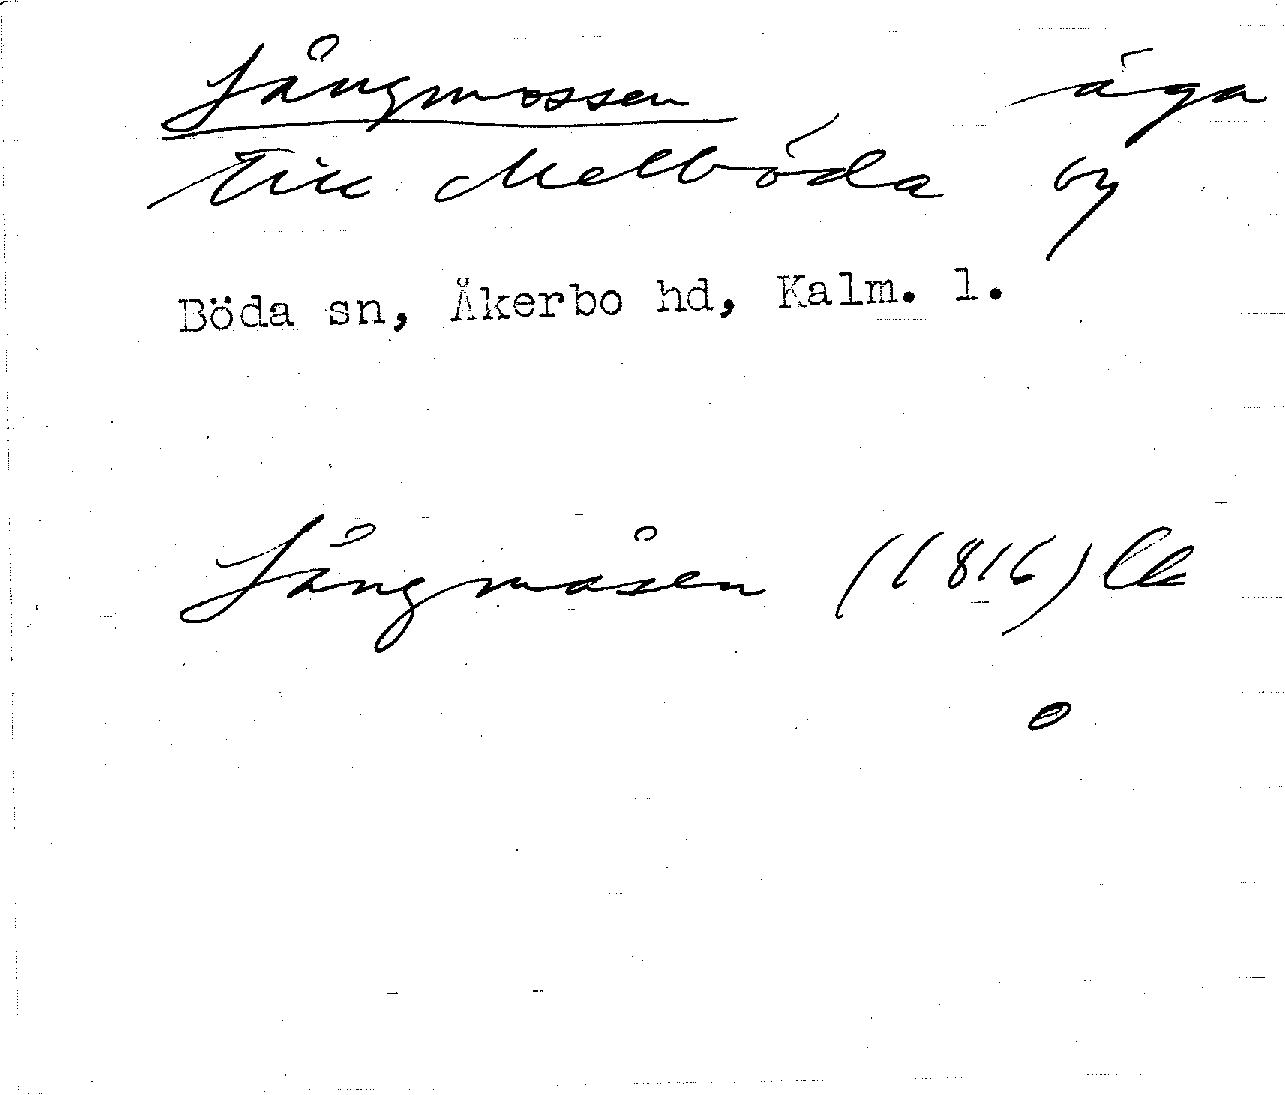 Långmossen äga
till Mellböda by
Böda sn, Åkerbo hd, Kalm. l.
Långmåsen (1816)